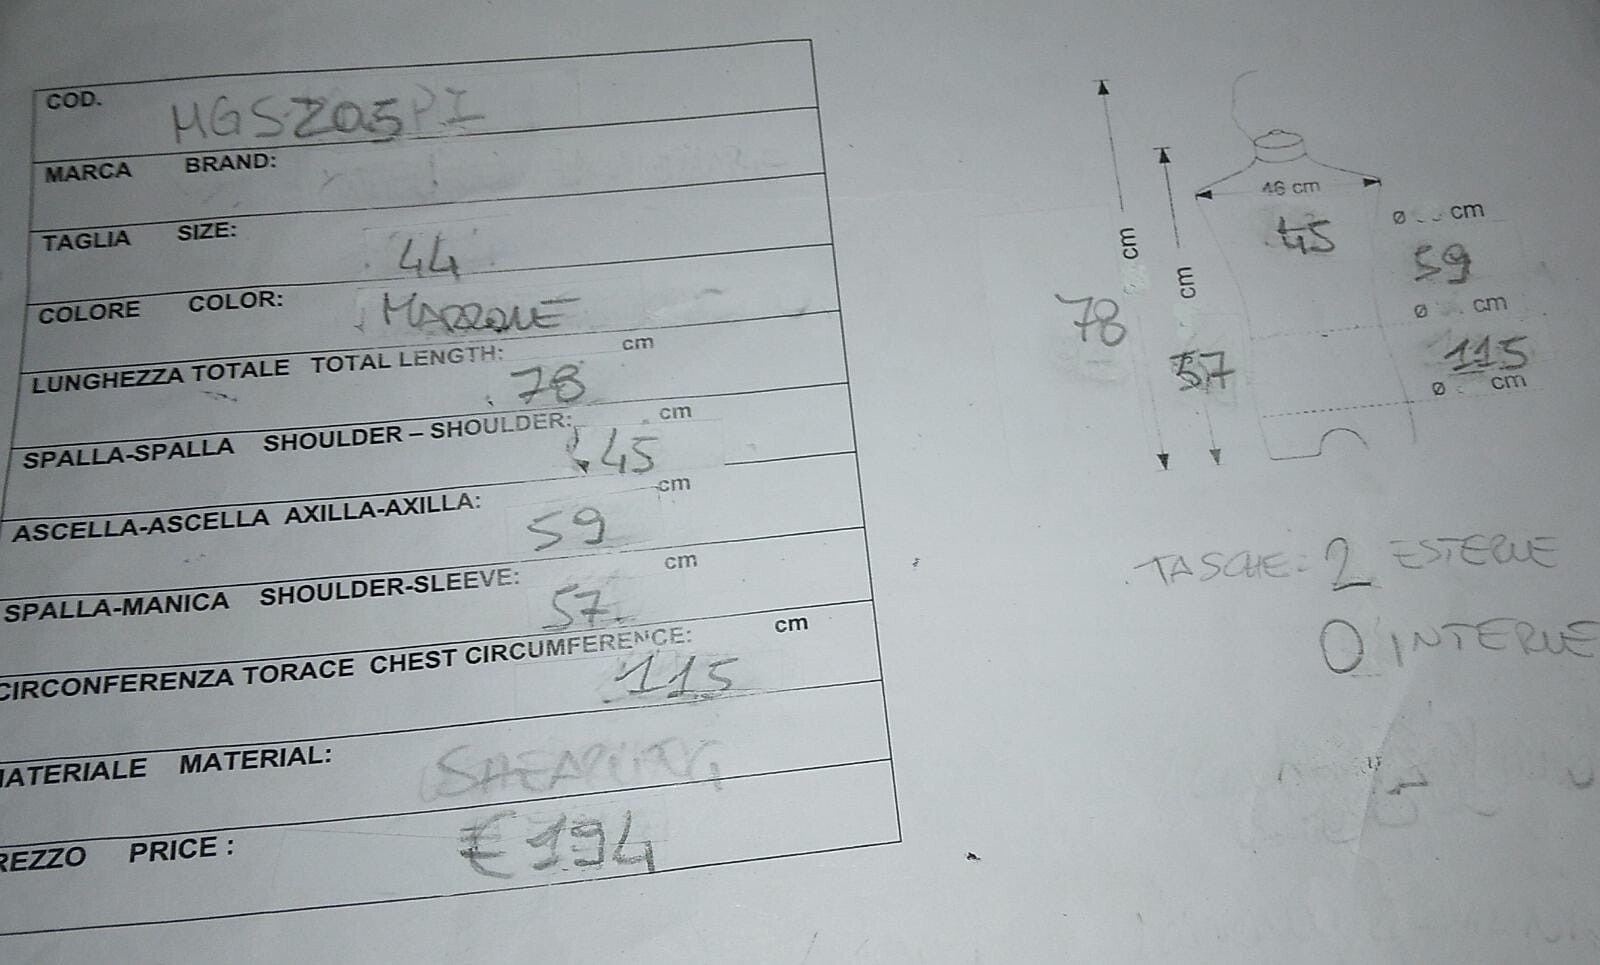 COD. MGSZ05PI
MARCA BRAND:
TAGLIA SIZE: 44
COLORE COLOR: MARRONE
LUNGHEZZA TOTALE TOTAL LENGTH: 78 cm
SPALLA-SPALLA SHOULDER – SHOULDER: 45 cm
ASCELLA-ASCELLA AXILLA-AXILLA: 59 cm
SPALLA-MANICA SHOULDER-SLEEVE: 57 cm
CIRCONFERENZA TORACE CHEST CIRCUMFERENCE: 115 cm
MATERIALE MATERIAL: SHEARLING
REZZO PRICE : € 194
46 cm
45
ø cm
59
ø cm
115
ø cm
78 cm
57 cm
TASCHE: 2 ESTERNE
0 INTERNE